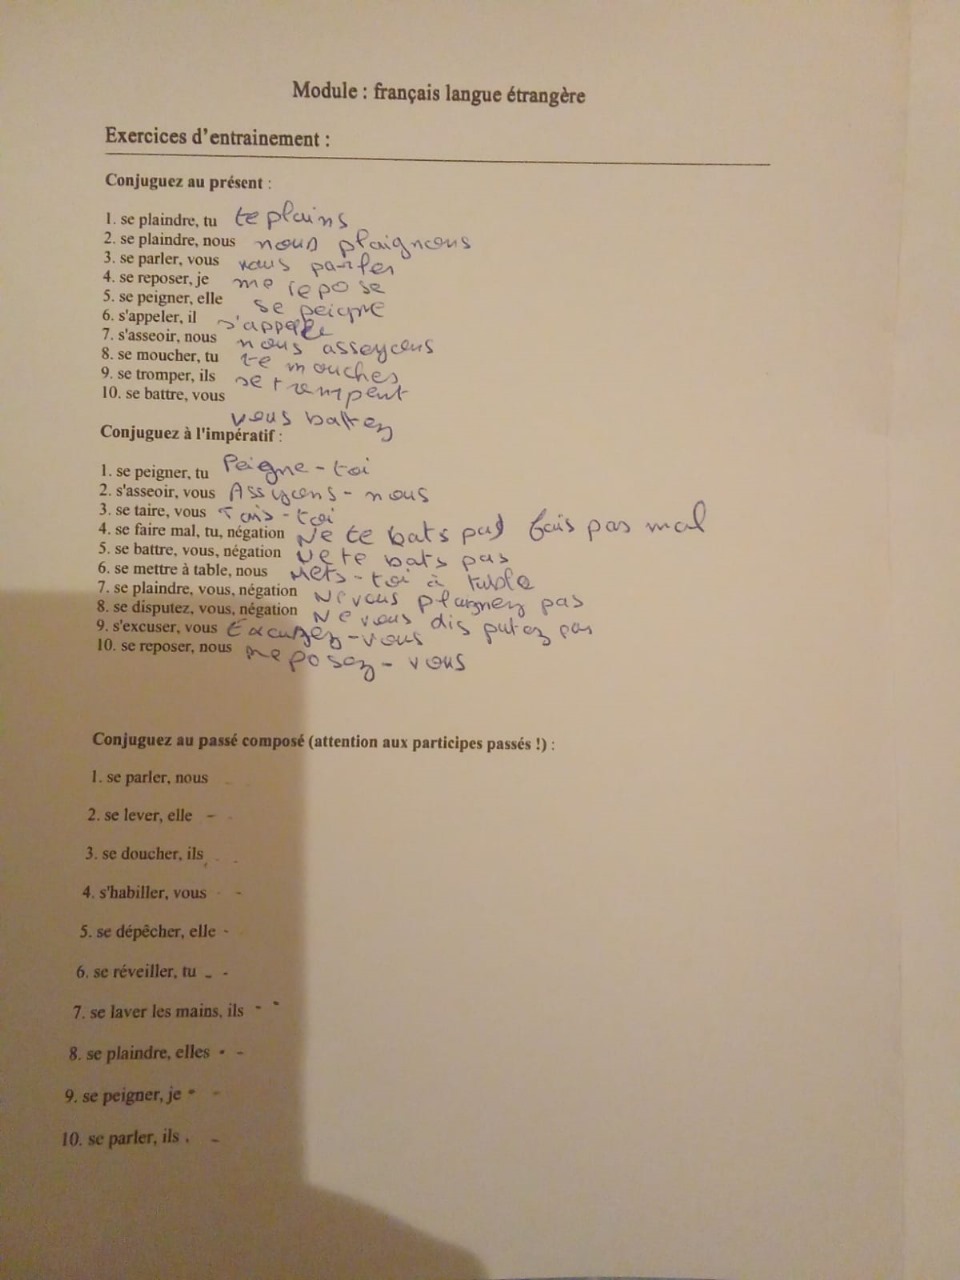 Module : français langue étrangère
Exercices d'entrainement :
Conjuguez au présent :
1. se plaindre, tu te plains
2. se plaindre, nous nous plaignons
3. se parler, vous vous parlez
4. se reposer, je me repose
5. se peigner, elle se peigne
6. s'appeler, il s'appelle
7. s'asseoir, nous nous asseyons
8. se moucher, tu te mouches
9. se tromper, ils se trempent
10. se battre, vous vous battez
Conjuguez à l'impératif :
1. se peigner, tu Peigne-toi
2. s'asseoir, vous Assyons-nous
3. se taire, vous Tais-toi
4. se faire mal, tu, négation Ne te bats pas fais pas mal
5. se battre, vous, négation Ne te bats pas
6. se mettre à table, nous Mets-toi à table
7. se plaindre, vous, négation Ne vous plaignez pas
8. se disputez, vous, négation Ne vous disputez pas
9. s'excuser, vous Excusez-vous
10. se reposer, nous Reposez-vous
Conjuguez au passé composé (attention aux participes passés !) :
1. se parler, nous
2. se lever, elle
3. se doucher, ils
4. s'habiller, vous
5. se dépêcher, elle
6. se réveiller, tu
7. se laver les mains, ils
8. se plaindre, elles
9. se peigner, je
10. se parler, ils